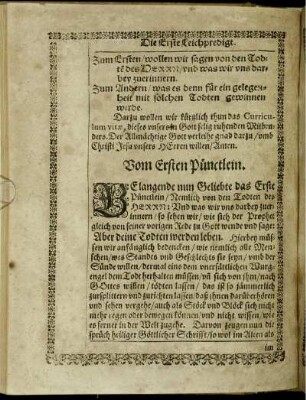 Die Erste Leichpredigt.
Zum Ersten / wollen wir sagen von den Tod-
ten des HERRN / und was wir uns dar-
bey zuerinnern.
Zum Andern / was es denn für ein gelegen-
heit mit solchen Todten gewinnen
werde.
Darzu wollen wir kürtzlich thun das Curricu-
lum vitæ, dieses unsers in Gott selig ruhenden Mitbru-
ders. Der Allmächtige Gott verleihe gnad darzu / umb
Christi Jesu unsers HErren willen / Amen.
Vom Ersten Pünctlein.
BElangende nun Geliebte das Erste
Pünctlein / Nemlich von den Todten des
HERRN: Und was wir uns darbey zuer-
innern / so sehen wir / wie sich der Prophet
gleich von seiner vorigen Rede zu Gott wende und sage:
Aber deine Todten werden leben. Hierbey müs-
sen wir anfänglich bedencken / wie nemlich alle Men-
schen / wes Standes und Geschlechts sie seyn / umb der
Sünde willen / dermal eins dem unersättlichen Würg-
engel dem Todt herhalten müssen /
GOttes willen / tödten lassen / das ist so jämmerlich
zurichten lassen / daß ihnen darüber hören
und sehen vergehe / auch als Stöck und Blöck sich nicht
mehr regen oder bewegen können / und nicht wissen / wie
es ferner in der Welt zugehe. Darvon zeugen nun die
sprüch heiliger Göttlicher Schrifft / so wol im Alten als
im